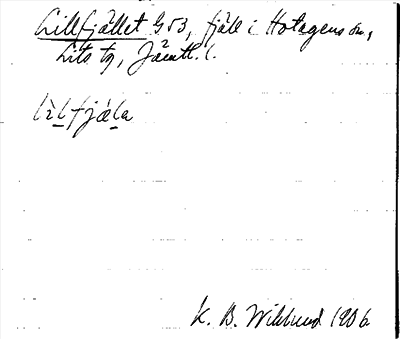 Lillfjället G 53, fjäll i Hotagens sn,
Lits tg, Jämtl. l.
lìlfjæ̀la
K. B. Wiklund 1906